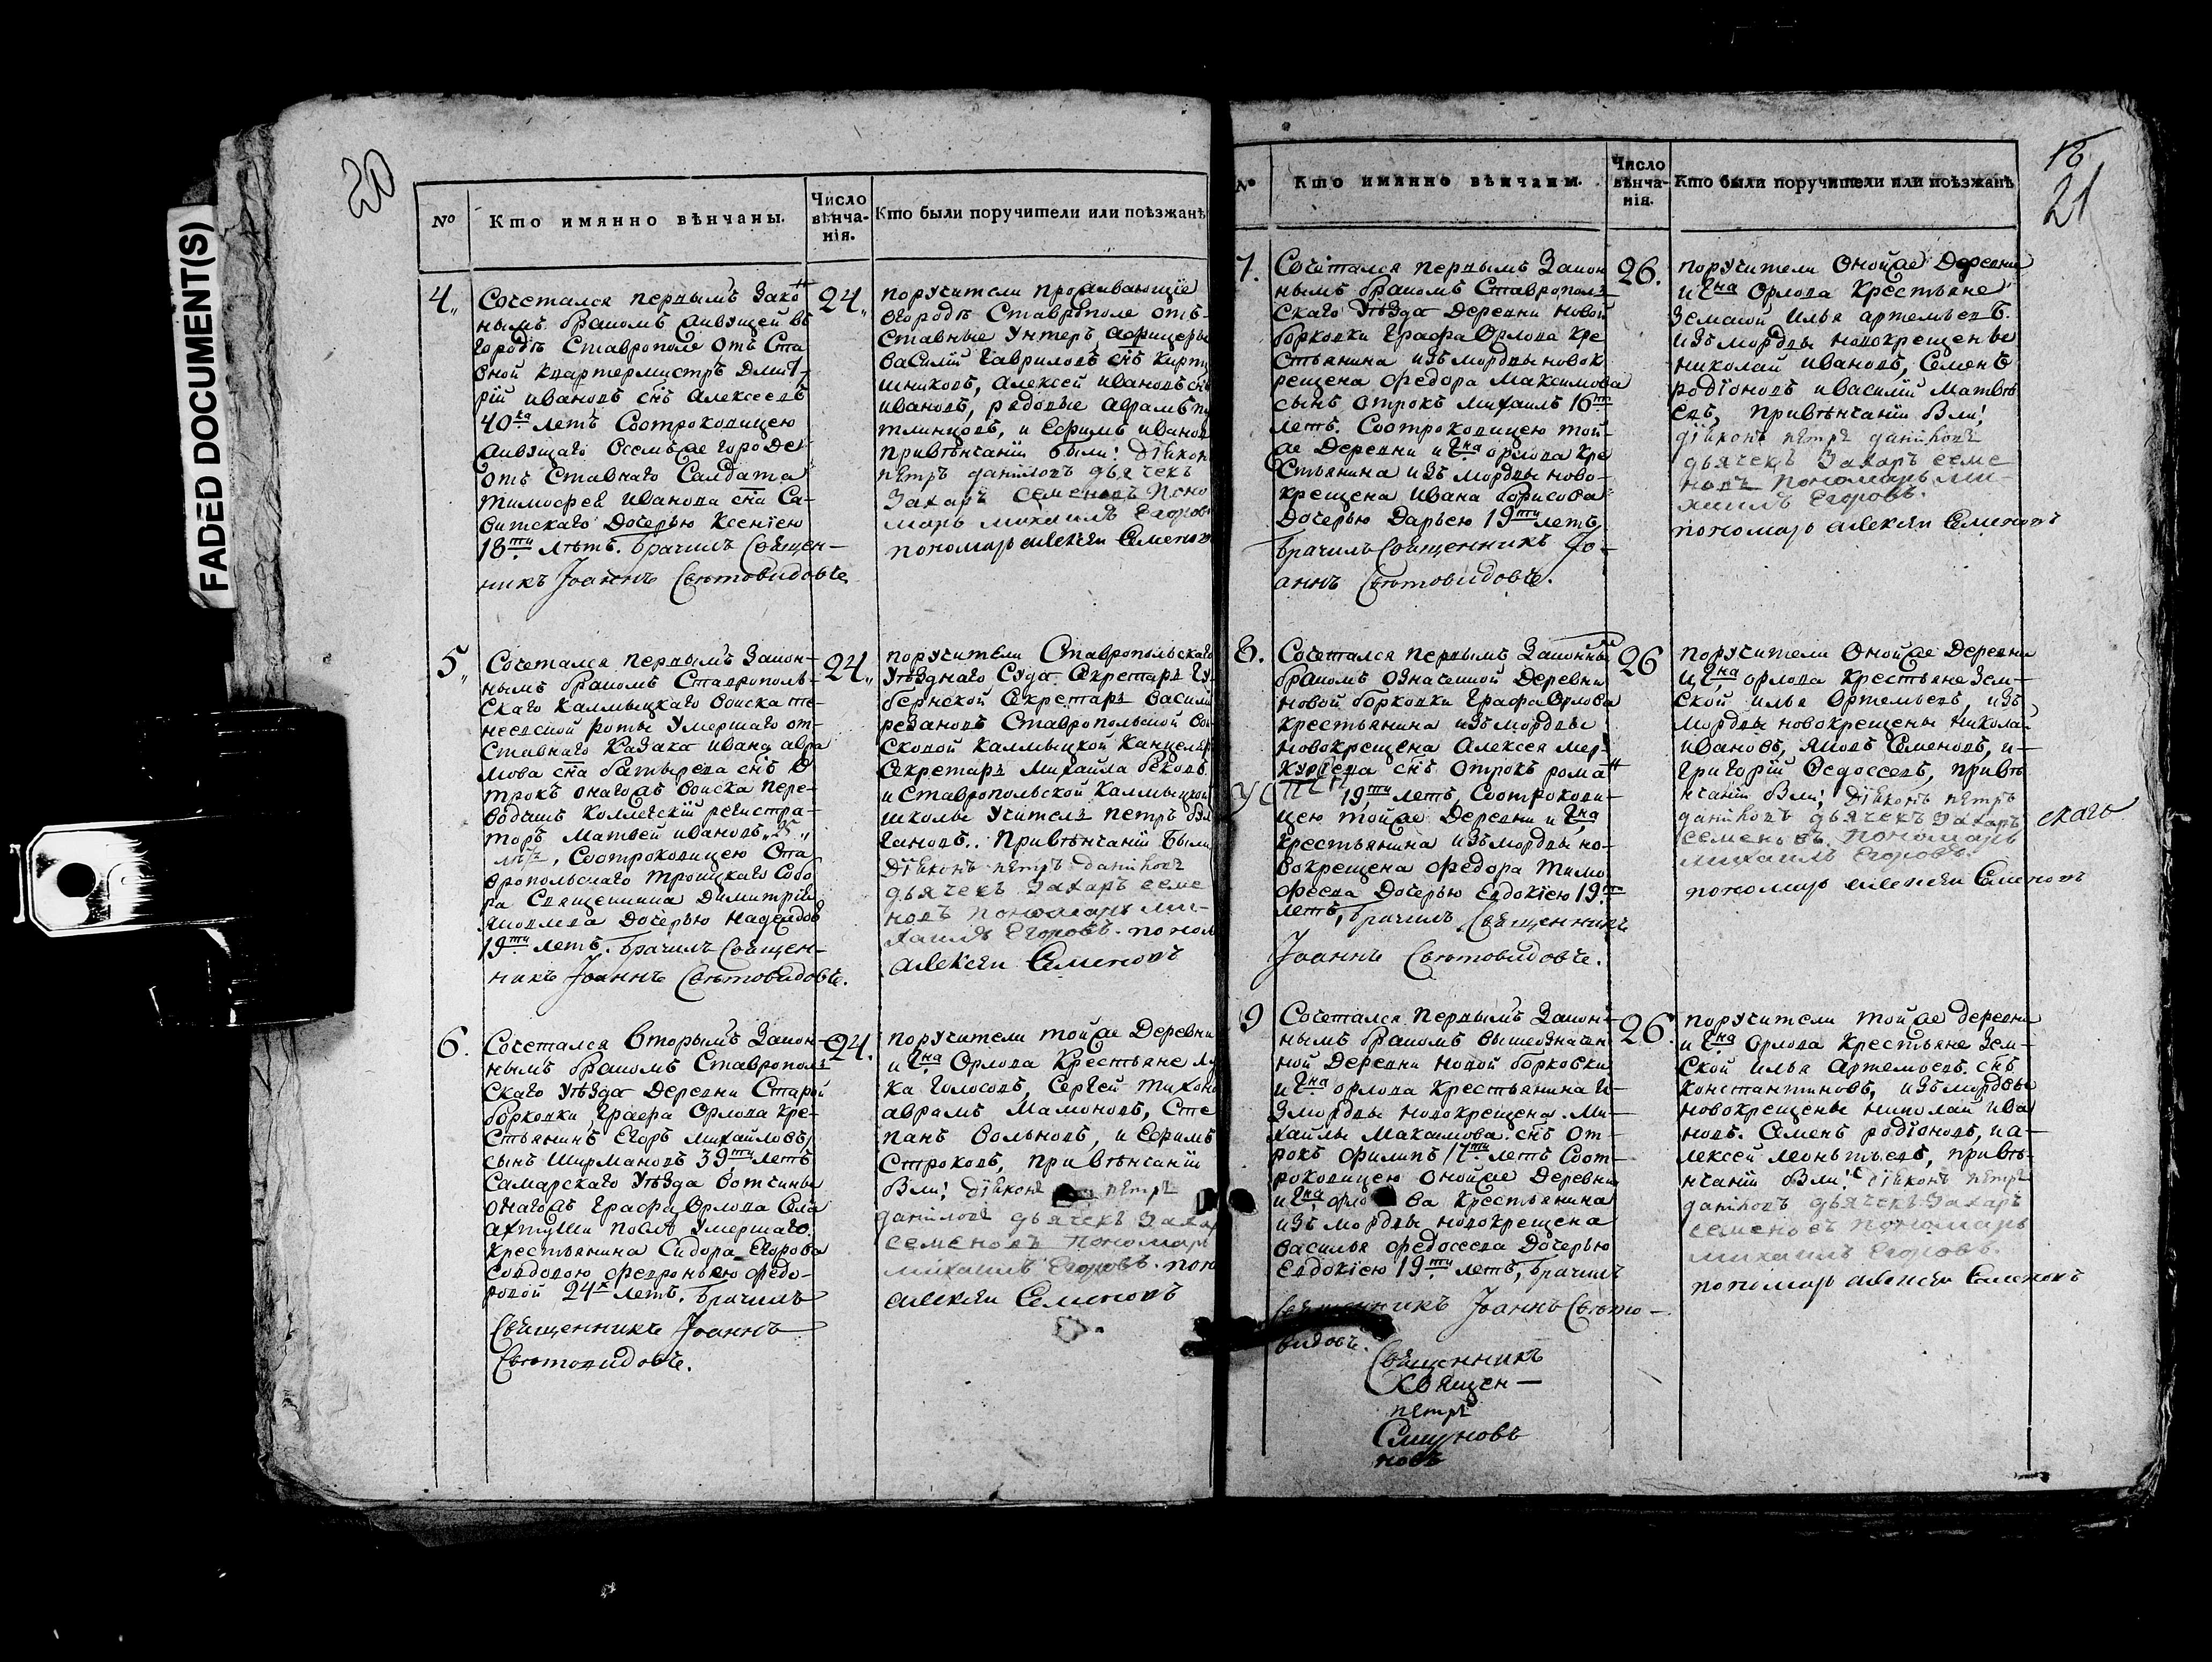 FADED DOCUMENT(S)
20
№
Кто имянно вѣнчаны.
Число вѣнчанія.
Кто были поручители или поѣзжанѣ
4
Сочетался первымъ зако
ннымъ бракомъ живущей въ
городѣ Ставрополе отъ Ста
вной квартермистръ Дмит
рій Ивановъ снъ Алексеевъ
40ка летъ Соотроковицею
живущаго Всемъже городе
отъ Ставнаго Салдата
Тимофея Иванова сна Са-
витскаго Дочерью Ксеніею
18ти лѣтъ. Брачилъ Священ-
никъ Іоаннъ Святовидовъ
24
поручители проживающіе
вгородѣ Ставрополе отъ-
ставные Унтеръ афицеры
Василій Гавриловъ снъ Кирпи
шниковъ, Алексей Ивановъ снъ
Ивановъ, рядовые Аврамъ
и Ефимъ Иванов
привѣнчаніи были: діаконъ
петръ даниловъ дьячекъ
Захаръ Семеновъ поно
марь михаилъ Егоровъ
пономарь алексѣи Семеновъ
5
Сочетался первымъ закон-
нымъ бракомъ Ставрополь-
скаго Калмыцкаго Войска
роты Умершаго от-
ставнаго Казака Ивана Авра
мова сна Батырева снъ О
трокъ онагожъ Войска пере-
водчикъ Коллежскій регистра-
торъ Матвей Ивановъ
летъ, Соотроковицею Ста
вропольскаго Троицкаго Собо
ра Священника Димитрія
Яковлева Дочерью Надеждою
19ти летъ. Брачилъ Священ-
никъ Іоаннъ Святовидовъ.
24
поручители Ставропольскаго
Уѣзднаго Суда Секретарь Гу-
бернской Секретарь Василій
Резановъ Ставропольской Вои
сковой Калмыцкой Канцеляр
Секретарь Михайла Бековъ
и Ставропольской Калмыцкой
школы Учитель Петръ Бул
гановъ.. Привѣнчаніи Были
Діаконъ петръ даниловъ
дьячекъ Захаръ семе
новъ пономарь ми-
хаилъ Егоровъ. поном
алексѣи Семеновъ
6.
Сочетался Вторымъ закон-
нымъ бракомъ Ставрополь
скаго Уѣзда Деревни Старой
борковки Графа Орлова кре-
стьянинъ Егоръ Михайловъ
сынъ Ширмановъ 39ти летъ
Самарскаго Уѣзда Вотчины
онагожъ Графа Орлова Села
Ахтуши послѣ Умершаго
крестьянина Сидора Егорова
Совдовою Февроньею Федо-
ровой 24х летъ. Брачилъ
Священникъ Іоаннъ
Святовидовъ.
24.
поручители тойже Деревни
и Гна Орлова Крестьяне Лу
ка Голосовъ, Сергей Тихоно
Аврамъ Мамоновъ, Сте
панъ Вольновъ, и Ефимъ
Строковъ, привѣнчаніи
Были: діаконъ петръ
даниловъ дьячекъ Захар
семеновъ пономарь
михаилъ Егоровъ. поно
алексѣи Семеновъ
16
21
№
Кто имянно вѣнчаны.
Число вѣнчанія.
Кто были поручители или поѣзжанѣ
7.
Сочетался первымъ закон
нымъ бракомъ Ставрополь
скаго Уѣзда Деревни Новой
борковки Графа Орлова кре
стьянина изъ мордвы новок
рещена Федора Максимова
сынъ отрокъ Михаилъ 16ти
летъ. Соотроковицею той-
же Деревни и Гна Орлова кре
стьянина изъ мордвы ново-
крещена Ивана Борисова
Дочерью Дарьею 19ти летъ,
Брачилъ Священникъ Іо-
аннъ Святовидовъ.
26.
поручители Онойже Деревни
и Гна Орлова Крестьяне
Земской Илья Артемьевъ.
изъ мордвы новокрещены
Николай Ивановъ, Семенъ
Родіоновъ и Василій Матвѣ
евъ, привѣнчаніи Были:
діаконъ петръ даниловъ
дьячекъ Захаръ семе
новъ пономарь ми-
хаилъ Егоровъ.
пономарь алексѣи Семеновъ
8.
Сочетался первымъ законны
бракомъ означенной Деревни
новой борковки Графа Орлова
крестьянина изъ мордвы
новокрещена Алексея Мер-
курьева снъ отрокъ рома
19ти летъ, Соотрокови-
цею тойже Деревни и Гна
крестьянина изъ мордвы но-
вокрещена Федора Тимо
феева Дочерью Евдокіею 19ти
летъ, Брачилъ Священникъ
Іоаннъ Святовидовъ.
26
поручители Онойже Деревни
и Гна Орлова Крестьяне Зем-
ской Илья Артемьевъ, изъ
мордвы новокрещены Николай
Ивановъ, Яковъ Семеновъ, и-
Григорій Федосеевъ, привѣ
нчаніи Были: діаконъ петръ
даниловъ дьячекъ Захаръ
семеновъ. пономарь
михаилъ Егоровъ.
пономарь алексѣи Семеновъ
скаго
9
Сочетался первымъ закон-
нымъ бракомъ вышеозначен
ной Деревни Новой борковки
и Гна Орлова Крестьянина и
змордвы новокрещена Ми-
хайлы Максимова снъ от-
рокъ Филипъ 17ти летъ Соот-
роковицею онойже Деревни
и Гна Орлова Крестьянина
изъ мордвы новокрещена
Василья Федосеева Дочерью
Евдокіею 19ти летъ, Брачилъ
Священникъ Іоаннъ Свято-
видовъ.
Священникъ
Священ-
петръ
Смирновъ
новъ
26.
поручители тойже деревни
и Гна Орлова Крестьяне Зем-
ской Илья Артемьевъ снъ
Константиновъ, изъ мордвы
новокрещены Николай Ива
новъ. Семенъ Родіоновъ, и А-
лексей Леонтьевъ, привѣ-
нчаніи Были: діаконъ петръ
даниловъ дьячекъ Захаръ
семеновъ пономарь
михаилъ Егоровъ.
пономарь алексѣи Семеновъ